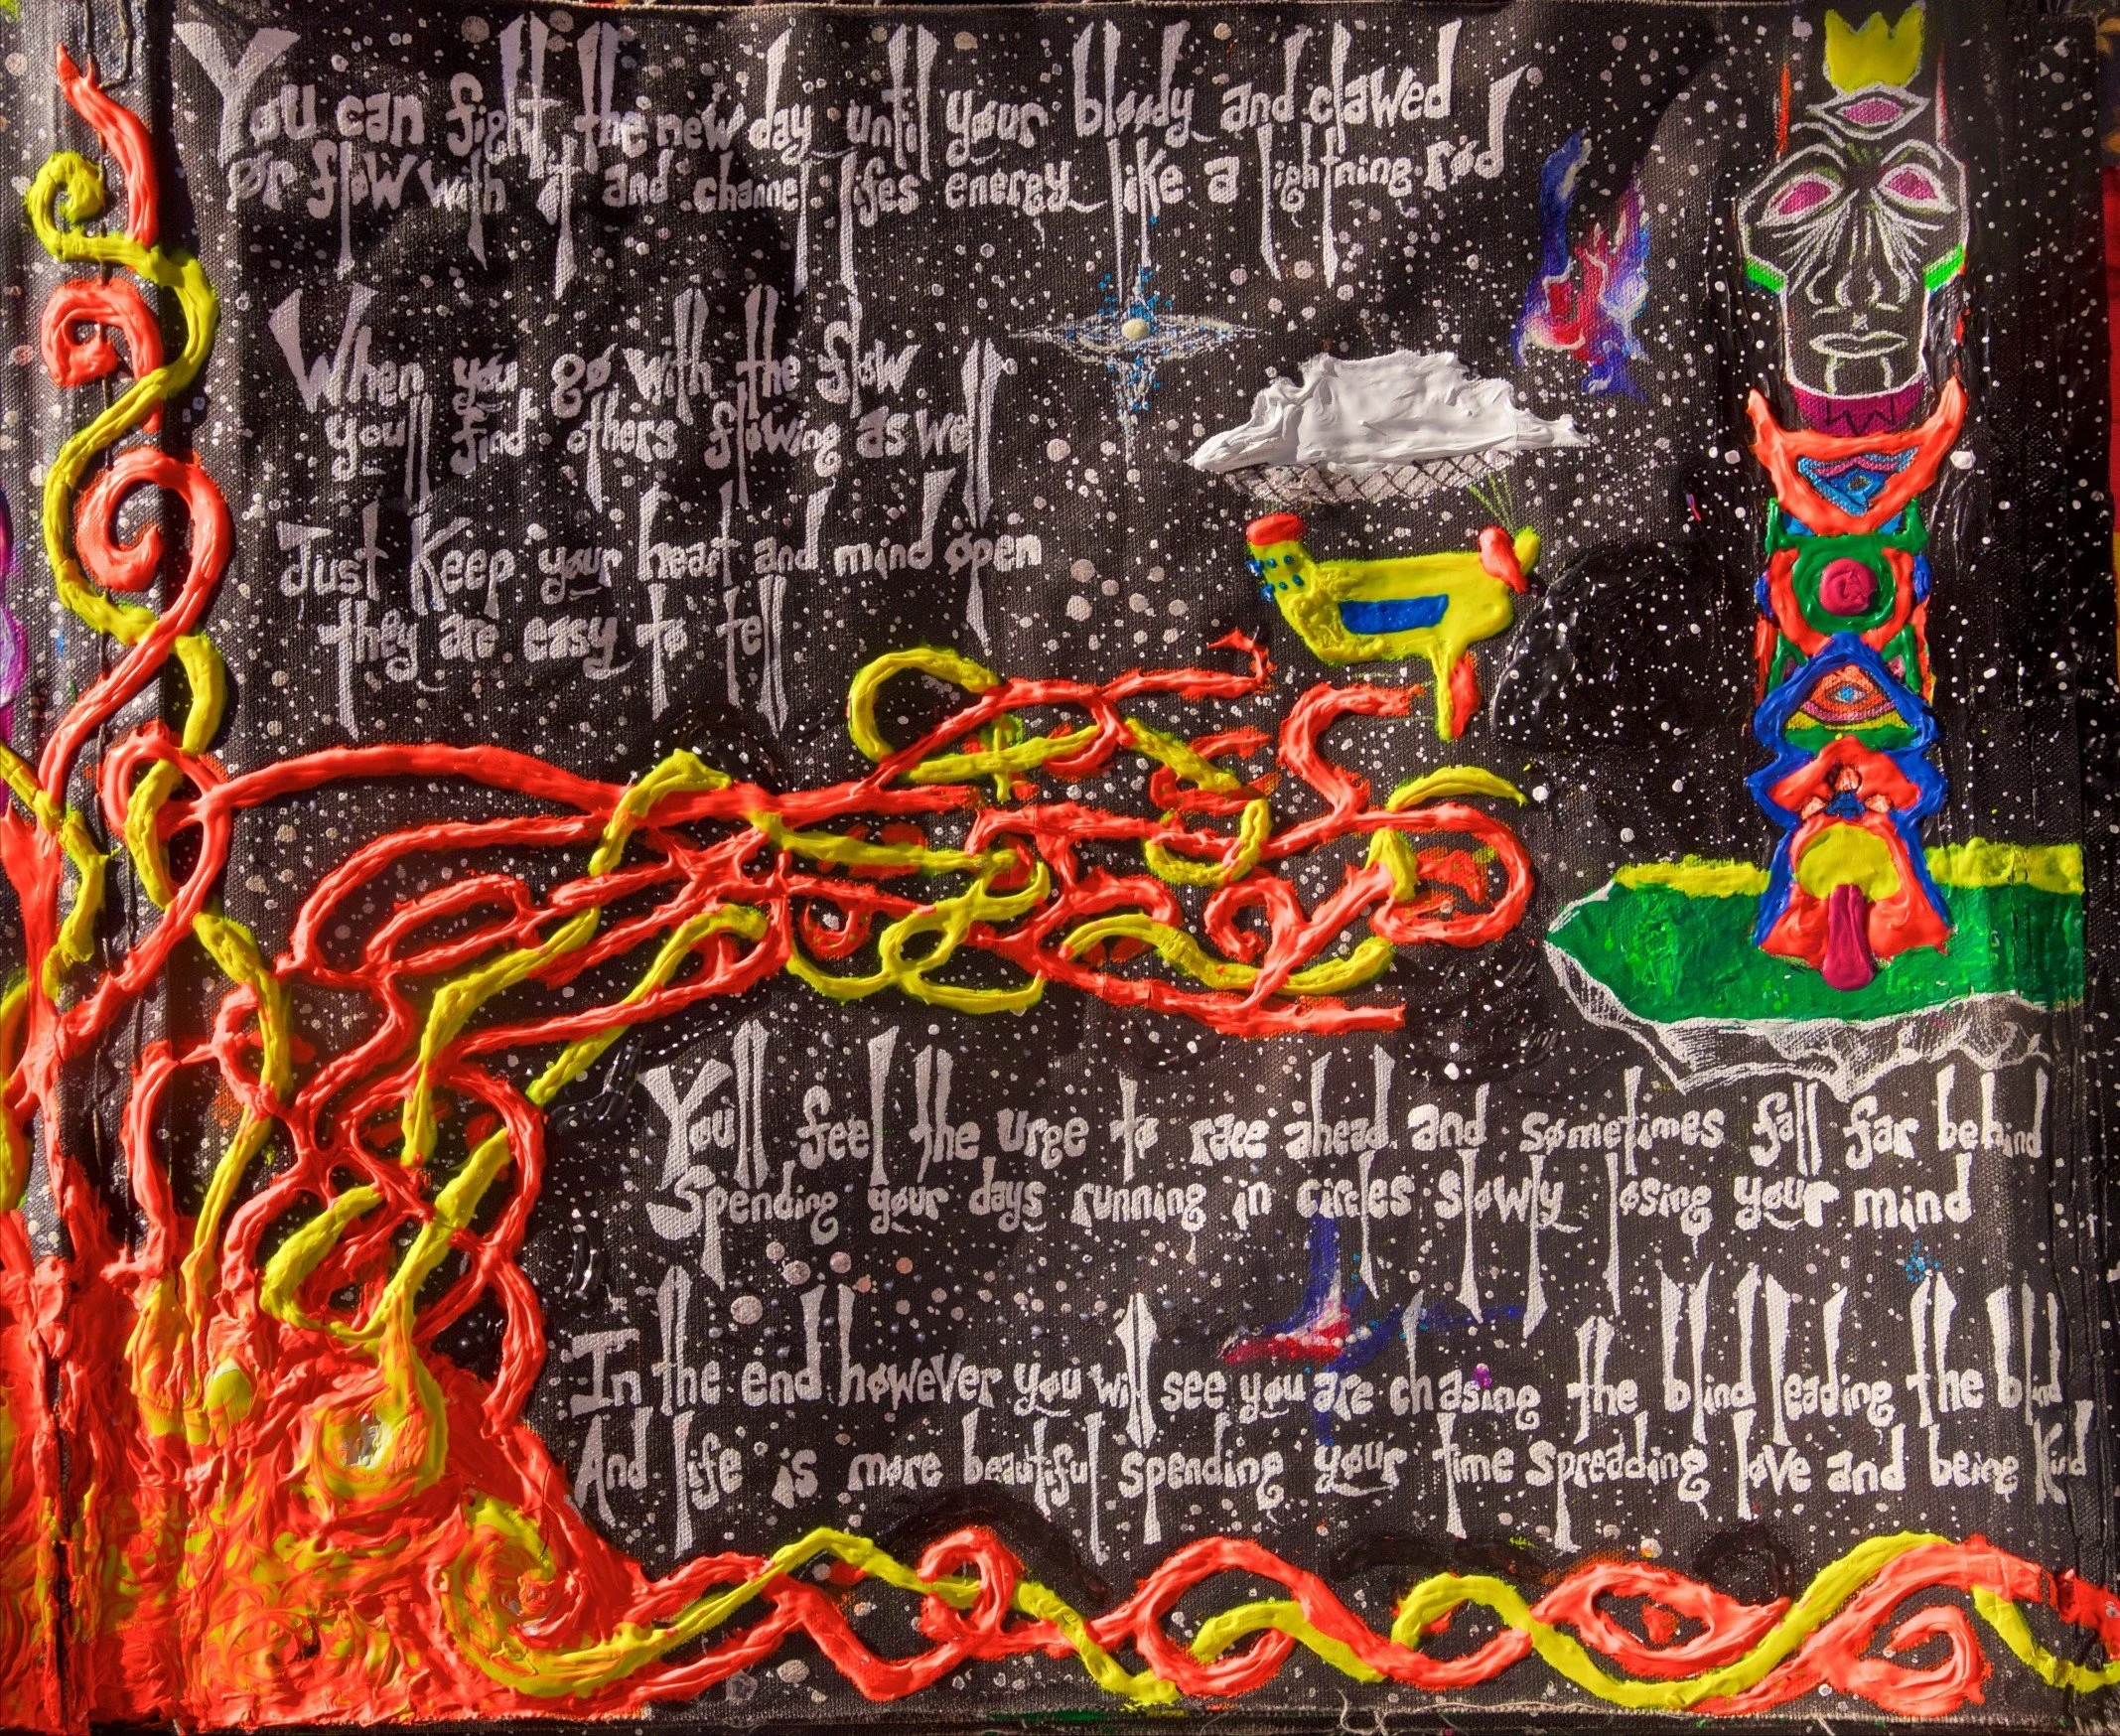 You can fight the new day until your bloody and clawed
Or flow with it and channel lifes energy like a lightning rod
When you go with the flow
you'll find others flowing as well
Just Keep your heart and mind open
they are easy to tell
You'll feel the urge to race ahead and sometimes fall far behind
Spending your days running in circles slowly losing your mind
In the end however you will see you are chasing the blind leading the blind
And life is more beautiful spending your time spreading love and being kind